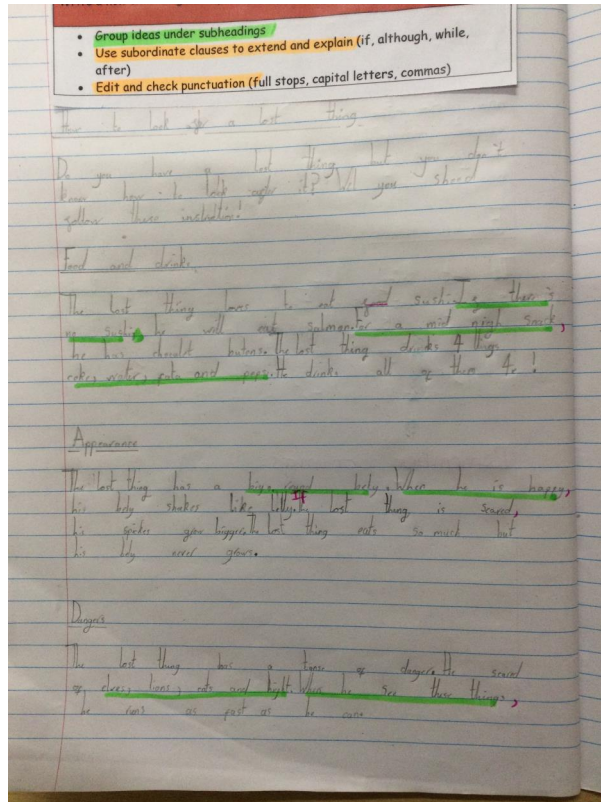 • Group ideas under subheadings
• Use subordinate clauses to extend and explain (if, although, while,
after)
• Edit and check punctuation (full stops, capital letters, commas)
How to look after a lost thing.
Do you have a lost thing but you don't
know how to look after it? you
follow these
Food and drinks.
The lost thing loves to eat good sushi. If there is
no sushi, he will eat For a mid nigh snack,
he has The lost thing drinks 4 things
coke, water, fata and pepsi. He drinks all of them
Appearance
The lost thing has a big, round body. When he is happy,
his body shakes like If lost thing is scared,
his spikes grow bigger. The lost thing eats so much but
his never grows.
Dangers
The lost thing has a of danger. He scared
of lions, cats and When he see these things,
he runs as fast as he cane